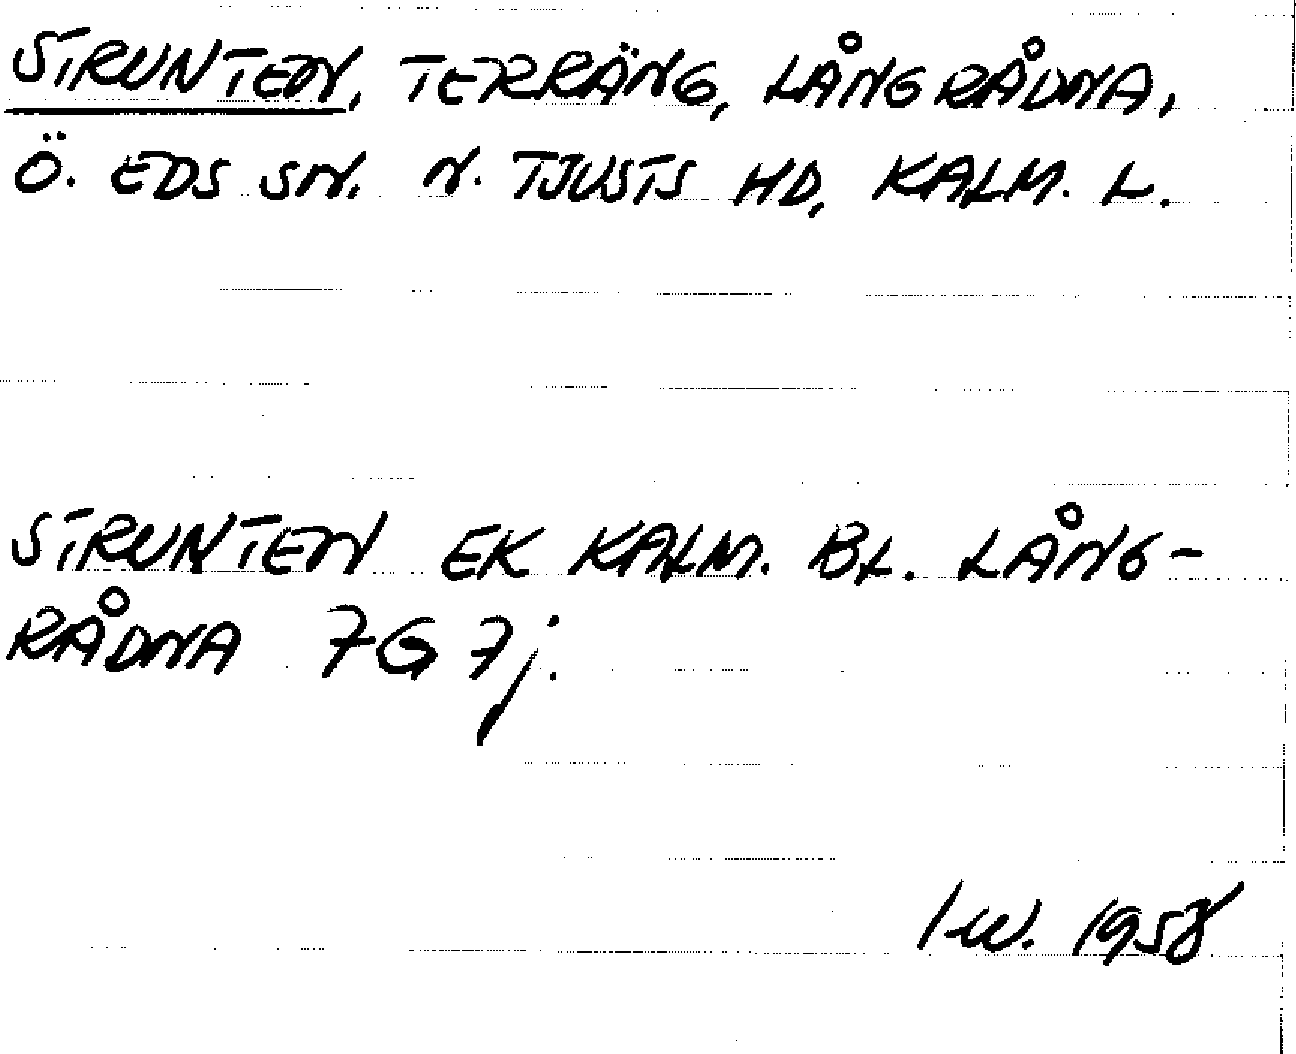 STRUNTEN, TERRÄNG, LÅNGRÅDNA,
Ö. EDS SN. N. TJUSTS HD, KALM. L.
STRUNTEN EK KALM. BL. LÅNG-
RÅDNA 7G 7j.
1958